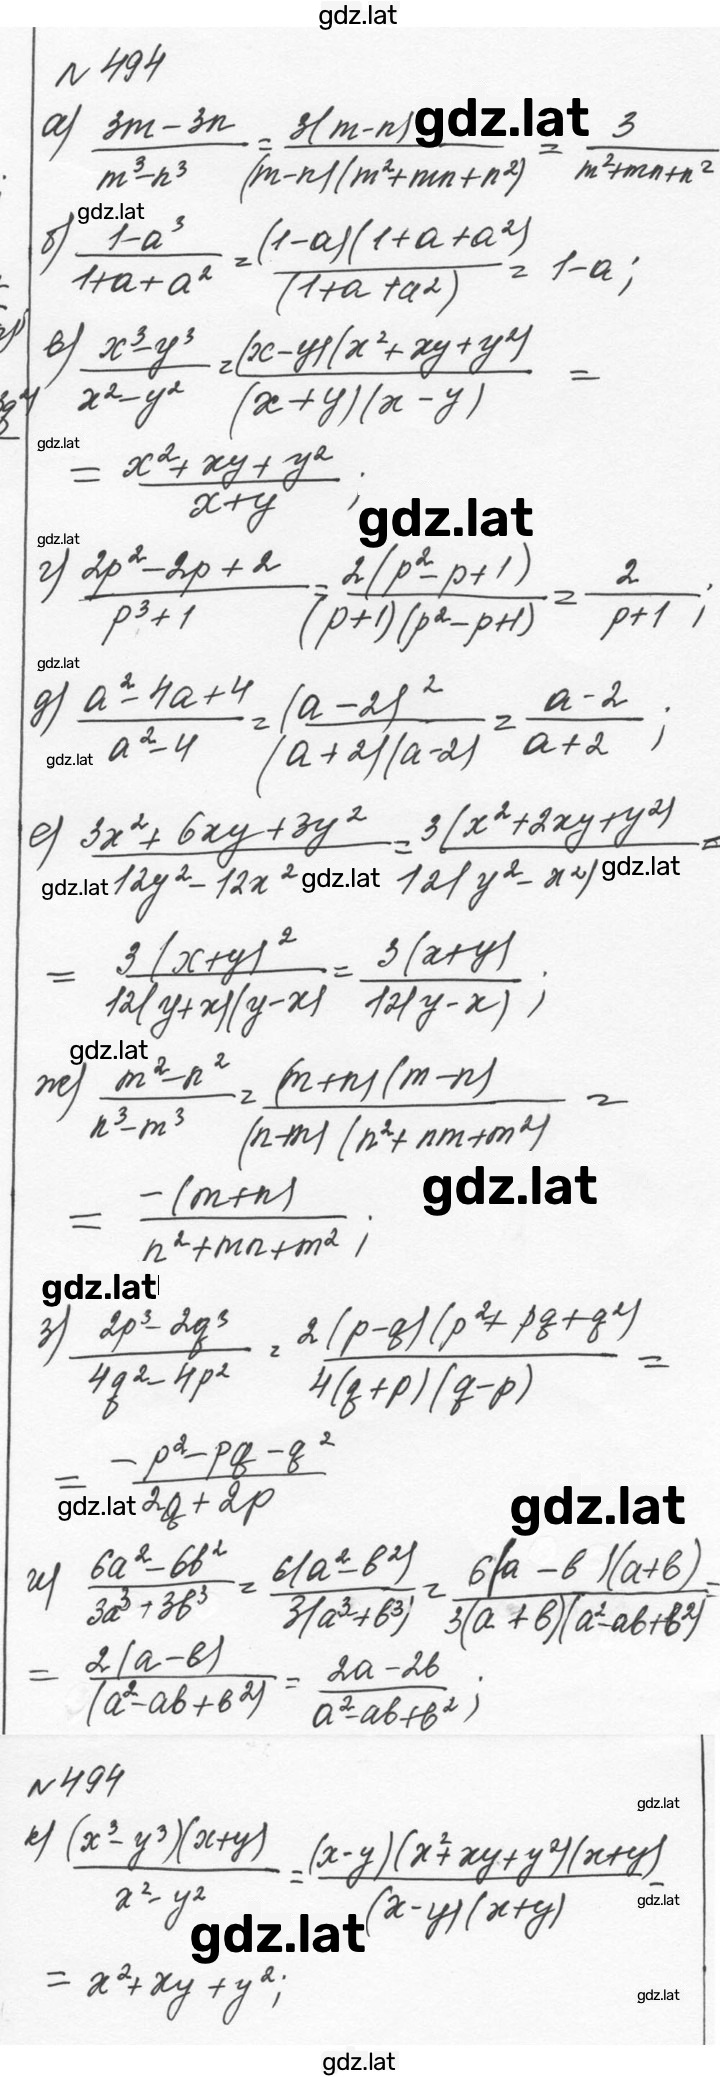 gdz.lat
№ 494
а) (3m − 3n)/(m³ − n³) = 3(m−n)/((m−n)(m²+mn+n²)) = 3/(m²+mn+n²)
gdz.lat
gdz.lat
б) (1−a³)/(1+a+a²) = (1−a)(1+a+a²)/(1+a+a²) = 1−a;
в) (x³−y³)/(x²−y²) = (x−y)(x²+xy+y²)/((x+y)(x−y)) =
gdz.lat
= (x²+xy+y²)/(x+y);
gdz.lat
gdz.lat
г) (2p²−2p+2)/(p³+1) = 2(p²−p+1)/((p+1)(p²−p+1)) = 2/(p+1);
gdz.lat
д) (a²−4a+4)/(a²−4) = (a−2)²/((a+2)(a−2)) = (a−2)/(a+2);
gdz.lat
е) (3x²+6xy+3y²)/(12y²−12x²) = 3(x²+2xy+y²)/(12(y²−x²)) =
gdz.lat gdz.lat gdz.lat
= 3(x+y)²/(12(y+x)(y−x)) = 3(x+y)/(12(y−x));
gdz.lat
ж) (m²−n²)/(n³−m³) = (m+n)(m−n)/((n−m)(n²+nm+m²)) =
gdz.lat
= −(m+n)/(n²+mn+m²);
gdz.lat
з) (2p³−2q³)/(4q²−4p²) = 2(p−q)(p²+pq+q²)/(4(q+p)(q−p)) =
= (−p²−pq−q²)/(2q+2p)
gdz.lat gdz.lat
и) (6a²−6b²)/(3a³+3b³) = 6(a²−b²)/(3(a³+b³)) = 6(a−b)(a+b)/(3(a+b)(a²−ab+b²)) =
= 2(a−b)/(a²−ab+b²) = (2a−2b)/(a²−ab+b²);
№ 494
gdz.lat
к) (x³−y³)(x+y)/(x²−y²) = (x−y)(x²+xy+y²)(x+y)/((x−y)(x+y)) =
gdz.lat
gdz.lat
= x²+xy+y²;
gdz.lat
gdz.lat